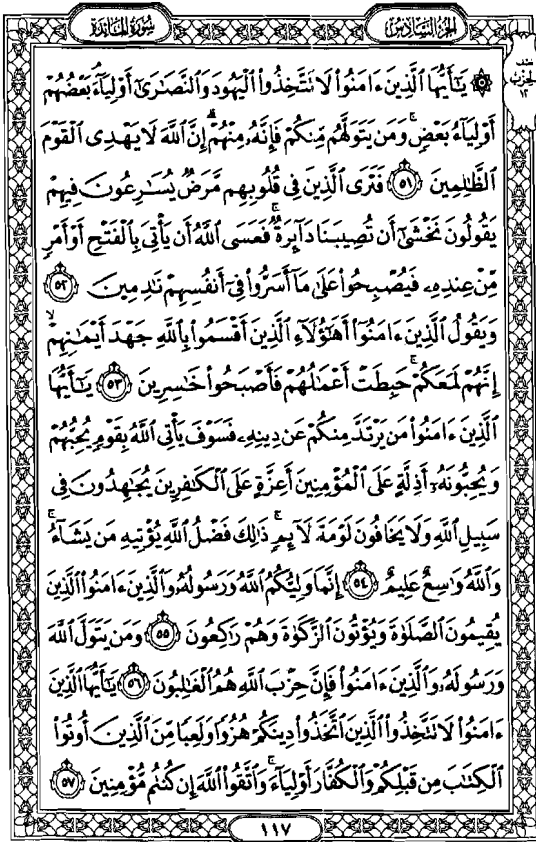 سورة المائدة
الجزء السادس
۞ يَـٰٓأَيُّهَا ٱلَّذِينَ ءَامَنُوا۟ لَا تَتَّخِذُوا۟ ٱلْيَهُودَ وَٱلنَّصَـٰرَىٰٓ أَوْلِيَآءَ ۘ بَعْضُهُمْ
أَوْلِيَآءُ بَعْضٍ ۚ وَمَن يَتَوَلَّهُم مِّنكُمْ فَإِنَّهُۥ مِنْهُمْ ۗ إِنَّ ٱللَّهَ لَا يَهْدِى ٱلْقَوْمَ
ٱلظَّـٰلِمِينَ ٥١ فَتَرَى ٱلَّذِينَ فِى قُلُوبِهِم مَّرَضٌ يُسَـٰرِعُونَ فِيهِمْ
يَقُولُونَ نَخْشَىٰٓ أَن تُصِيبَنَا دَآئِرَةٌ ۚ فَعَسَى ٱللَّهُ أَن يَأْتِىَ بِٱلْفَتْحِ أَوْ أَمْرٍ
مِّنْ عِندِهِۦ فَيُصْبِحُوا۟ عَلَىٰ مَآ أَسَرُّوا۟ فِىٓ أَنفُسِهِمْ نَـٰدِمِينَ ٥٢
وَيَقُولُ ٱلَّذِينَ ءَامَنُوٓا۟ أَهَـٰٓؤُلَآءِ ٱلَّذِينَ أَقْسَمُوا۟ بِٱللَّهِ جَهْدَ أَيْمَـٰنِهِمْ ۙ
إِنَّهُمْ لَمَعَكُمْ ۚ حَبِطَتْ أَعْمَـٰلُهُمْ فَأَصْبَحُوا۟ خَـٰسِرِينَ ٥٣ يَـٰٓأَيُّهَا
ٱلَّذِينَ ءَامَنُوا۟ مَن يَرْتَدَّ مِنكُمْ عَن دِينِهِۦ فَسَوْفَ يَأْتِى ٱللَّهُ بِقَوْمٍ يُحِبُّهُمْ
وَيُحِبُّونَهُۥٓ أَذِلَّةٍ عَلَى ٱلْمُؤْمِنِينَ أَعِزَّةٍ عَلَى ٱلْكَـٰفِرِينَ يُجَـٰهِدُونَ فِى
سَبِيلِ ٱللَّهِ وَلَا يَخَافُونَ لَوْمَةَ لَآئِمٍ ۚ ذَٰلِكَ فَضْلُ ٱللَّهِ يُؤْتِيهِ مَن يَشَآءُ ۚ
وَٱللَّهُ وَٰسِعٌ عَلِيمٌ ٥٤ إِنَّمَا وَلِيُّكُمُ ٱللَّهُ وَرَسُولُهُۥ وَٱلَّذِينَ ءَامَنُوا۟ ٱلَّذِينَ
يُقِيمُونَ ٱلصَّلَوٰةَ وَيُؤْتُونَ ٱلزَّكَوٰةَ وَهُمْ رَٰكِعُونَ ٥٥ وَمَن يَتَوَلَّ ٱللَّهَ
وَرَسُولَهُۥ وَٱلَّذِينَ ءَامَنُوا۟ فَإِنَّ حِزْبَ ٱللَّهِ هُمُ ٱلْغَـٰلِبُونَ ٥٦ يَـٰٓأَيُّهَا ٱلَّذِينَ
ءَامَنُوا۟ لَا تَتَّخِذُوا۟ ٱلَّذِينَ ٱتَّخَذُوا۟ دِينَكُمْ هُزُوًا وَلَعِبًا مِّنَ ٱلَّذِينَ أُوتُوا۟
ٱلْكِتَـٰبَ مِن قَبْلِكُمْ وَٱلْكُفَّارَ أَوْلِيَآءَ ۚ وَٱتَّقُوا۟ ٱللَّهَ إِن كُنتُم مُّؤْمِنِينَ ٥٧
١١٧
الحزب
١٢